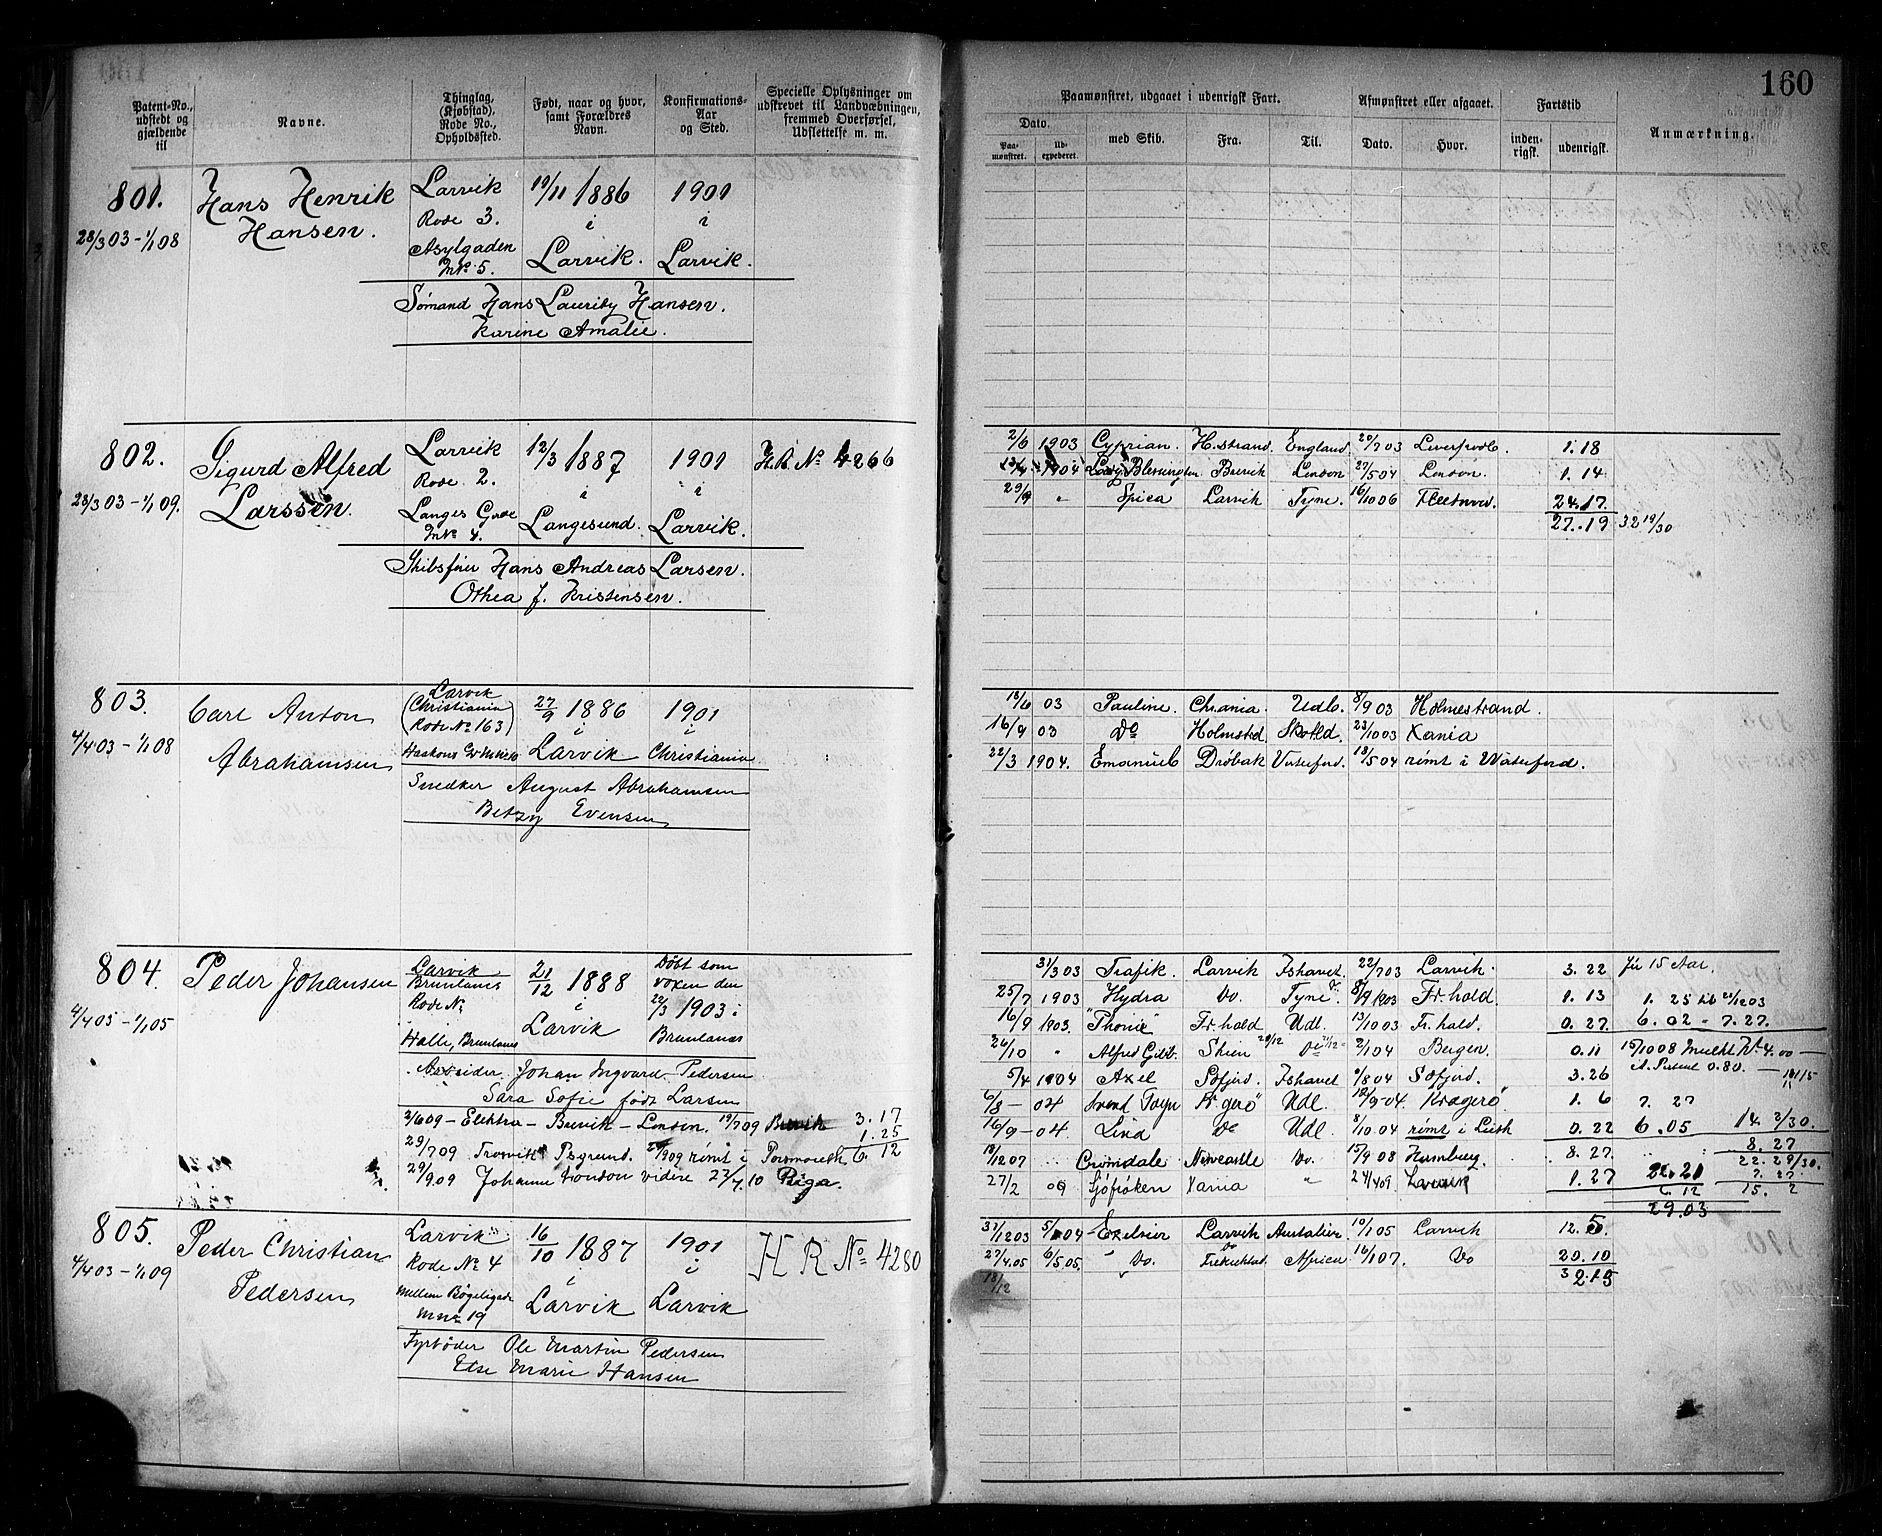 160
Patent-No., udstedt og gjældende til
Navne.
Thinglag, (Kjøbstad), Rode No., Opholdssted.
Født, naar og hvor, samt Forældres Navn.
Konfirmations-Aar og Sted.
Specielle Oplysninger om udskrevet til Landvæbningen, fremmed Overførsel, Udslettelse m. m.
Paamønstret, udgaaet i udenrigsk Fart.
Afmønstret eller afgaaet.
Fartstid
Anmærkning.
Dato.
Paa-mønstret.
Ud-expederet.
med Skib.
Fra.
Til.
Dato.
Hvor.
inden-rigsk.
udenrigsk.
801. Hans Henrik Hansen.
28/3 03 - 1/1 08
Larvik 19/11 1886 1901
Rode 3. i i
Asylgaden Larvik. Larvik.
M№ 5.
Sømand Hans Lauritz Hansen.
Karine Amalie.
802. Sigurd Alfred Larssen.
28/3 03 - 1/1 09.
Larvik 12/3 1887 1901 H.R. № 4266
Rode 2. i i
Langes Gade Langesund. Larvik.
M№ 4.
Skibsfører Hans Andreas Larsen.
Othea J. Kristensen.
2/6 1903 Cyprian. H.strand England. 20/7 03 Liverpool. 1.18
1904 Blessington Brevik London 27/5 04 London. 1.14
29/9 " Spica Larvik Tyne. 16/10 06 Fleetwood. 24.17.
27.19 32 19/30
803. Carl Anton Abrahamsen
4/4 03 - 1/1 08
Larvik
(Christiania 27/9 1886 1901
Rode № 163) i i
Larvik Christiania
Snedker August Abrahamsen
Betzy Evensen
18/6 03 Pauline. Chr.ania. Udl. 8/9 03 Holmestrand.
16/9 03 Do Holmstd. Skotld. 23/10 03 Xania
22/3 1904. Emanuel Drøbak Waterford. 18/5 04 rømt i Waterford.
804. Peder Johansen
4/4 05 - 1/1 05
Larvik 21/12 1888 Døbt som
Brunlanes voxen den
Rode № i 22/3 1903 i
Larvik Brunlanes
Halle, Brunlanes
Arbeider Johan Ingvard Pedersen
Sara Sofie født Larsen
2/6 09 - Elektra - Brevik - London. 19/7 09 Brevik 3.17
1.25
29/7 09 Prsgrund. 909 rømt i Porsmouth 6. 12
29/9 09 Johanne London videre 27/7.10 Riga.
31/3 03 Trafik. Larvik Ishavet. 22/7 03 Larvik. 3.22 før 15 Aar.
25/7 1903 Hydra Do. Tyne 8/9 1903 Fr.hald. 1.13 1. 25 til 21/12 03
16/9 1903. "Thonie" Fr.hald Udl. 13/10 03 Fr.hald. 0.27. 6. 02 - 7.27.
26/10 " Alfred Gibb. Skien 28/12 Do 2/1 04 Bergen. 0.11 15/10 08 Mulkt Kr. 4.00
5/4 1904 Axel Søfjord. Ishavet 04 Søfjord. 3.26 A. Patent 0.80.
6/8 - 04 Svend Foyn Kr.gerø Udl. 04. Kragerø 1. 6 7. 27
16/9 - 04. Lina Do Udl. 8/10 04 rømt i Leith 0.22 6.05 14. 2/30.
18/12 07 Cromdale Newcastle Do. 15/9 08 Hamburg. 8.27. 8.27
22. 29/30.
27/2 09 Sjøfrøken Xania " 24/4 09 Larvik 1.27 22.21 7. 27
6.12 15. 2
29.03
805. Peder Christian Pedersen
4/4 03 - 1/1 09
Larvik 16/10 1887 1901 H R № 4280
Rode № 4 i i
Mellem Bøgeligade Larvik Larvik
M№ 19
Fyrbøder Ole Martin Pedersen
Else Marie Hansen
31/12 03 5/1 04 Exelsior Larvik Australien 10/1 05 Larvik 12. 5
27/4.05 6/5.05. " Do. Frederikstad. Africa 16/1 07. Do 20.10
18/12 32.15